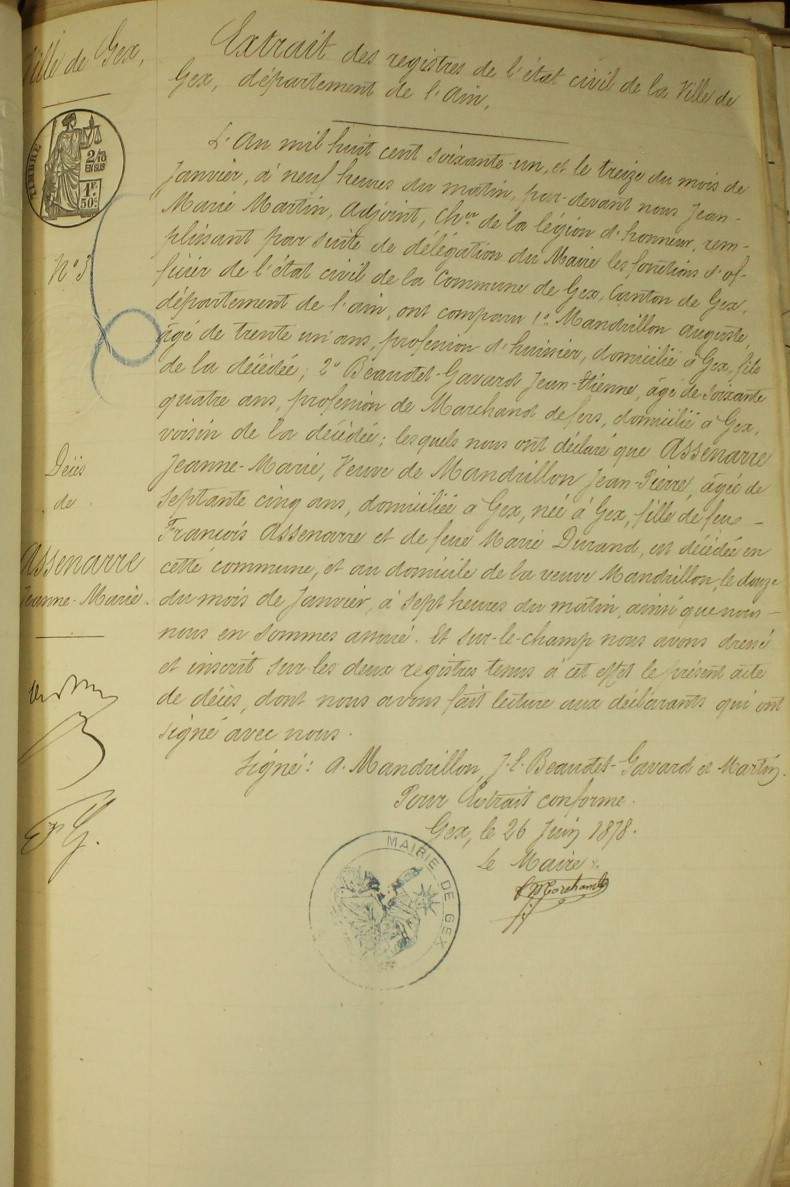 Ville de Gex,
TIMBRE
2/10
EN SUS
1F
50c
N° 3
Décès
de
Assenarre
Jeanne-Marie.
Extrait des registres de l'état civil de la Ville de
Gex, département de l'Ain,
L'An mil huit cent soixante-un, et le treize du mois de
Janvier, à neuf heures du matin, par-devant nous Jean-
Marie Martin, Adjoint, Cher de la légion d'honneur, rem-
plissant par suite de délégation du Maire les fonctions d'of-
ficier de l'état civil de la Commune de Gex, Canton de Gex,
département de l'ain, ont comparu 1° Mandrillon auguste,
âgé de trente un ans, profession d'huissier, domicilié à Gex, fils
de la décédée; 2° Beaudet-Gavard Jean-Etienne, âgé de soixante
quatre ans, profession de Marchand de fers, domicilié à Gex,
voisin de la décédée; lesquels nous ont déclaré que Assenarre
Jeanne-Marie, Veuve de Mandrillon Jean-Pierre, âgée de
septante cinq ans, domiciliée à Gex, née à Gex, fille de feu
François Assenarre et de feue Marie Durand, est décédée en
cette commune, et au domicile de la veuve Mandrillon, le douze
du mois de Janvier, à sept heures du matin, ainsi que nous
nous en sommes assuré. Et sur-le-champ nous avons dressé
et inscrit sur les deux registres tenus à cet effet le présent acte
de décès, dont nous avons fait lecture aux déclarants qui ont
signé avec nous.
Signé: A. Mandrillon, J. E. Beaudet-Gavard et Martin.
Pour Extrait conforme.
Gex, le 26 Juin 1878.
Le Maire.
MAIRIE DE GEX